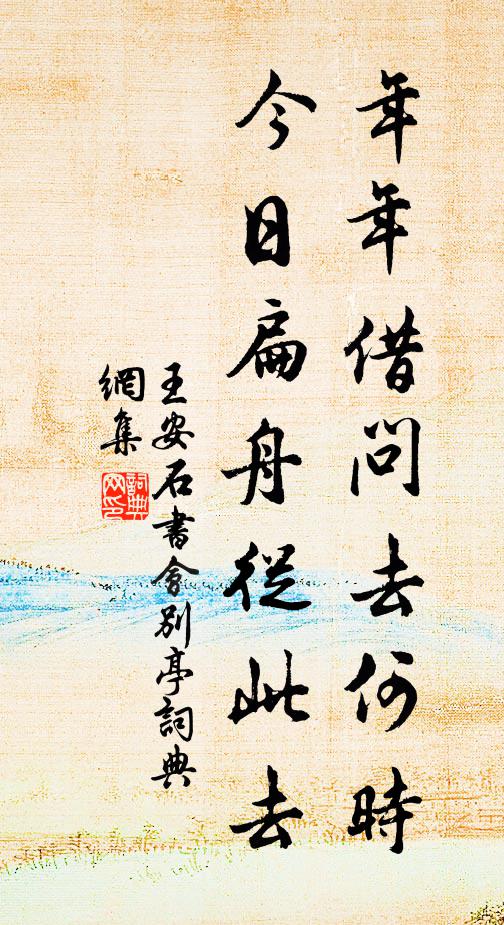 年年借問去何時
今日扁舟從此去
王安石書會別亭詞典
網集
詞典
网印